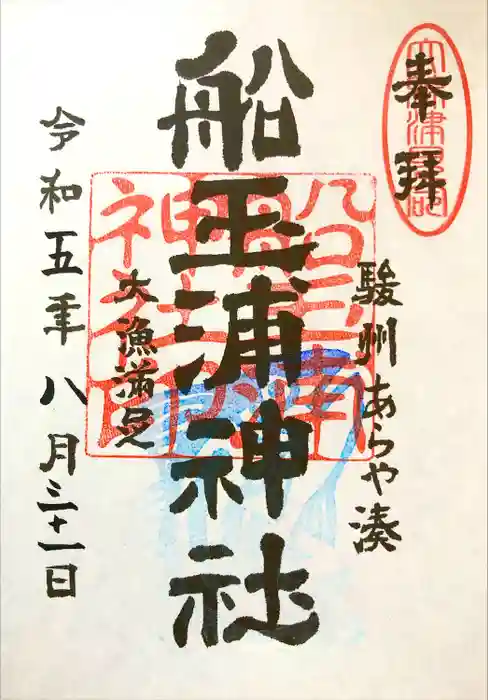 奉拝
駿州あらや湊
船玉浦神社
大漁満足
令和五年八月三十一日